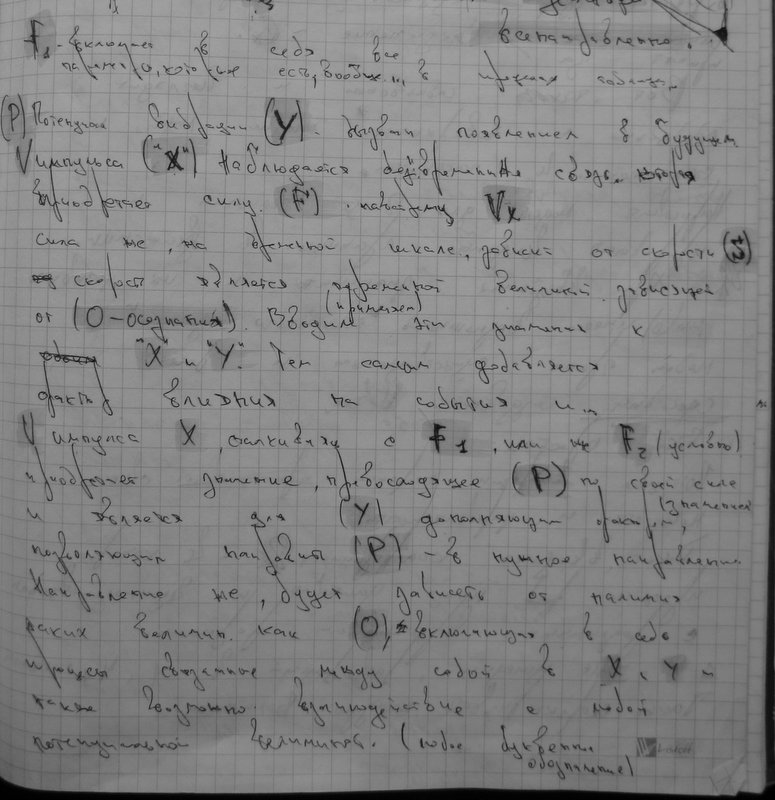 всенаправленно.
F1 - включает в себя все
параметры, которые есть, вообще... в
(P) Потенциал вибрации (Y). вызван появлением в будущем
V импульса ("X") Наблюдается безвременная связь. которая
приобретает силу. (F) Vx
сила же, на временной шкале, зависит от скорости
скорость является переменной величиной зависящей
от (О-осознания). Вводим (применяем) эти значения к
"X" и "Y". Тем самым добавляется
фактор влияния на события и...
V импульса X, сталкиваясь с F1, или же F2 (условно)
приобретает значение, превосходящее (P) по своей силе
и является для (Y) дополняющим фактором, (значением
позволяющим направить (P) - в нужное направление
Направление же, будет зависеть от наличия
таких величин как (O), включающих в себя
процессы связанные между собой в X, Y и
также возможно взаимодействие с любой
потенциальной величиной. (любое буквенное
обозначение)